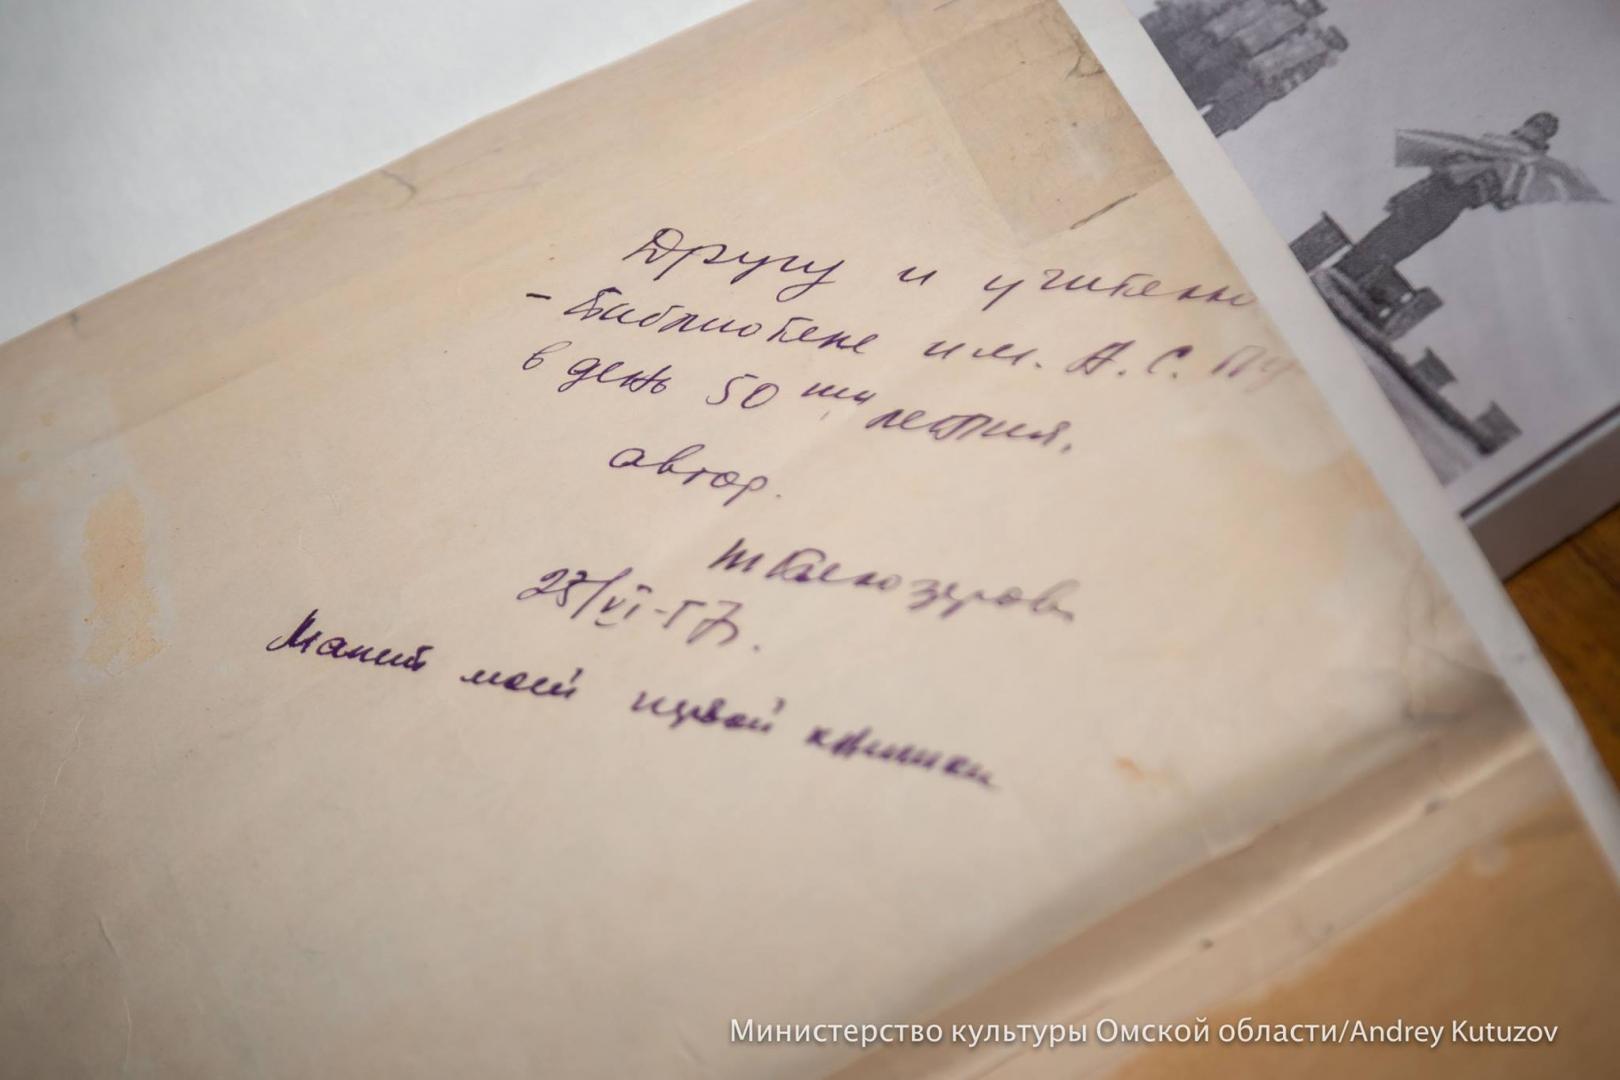 Другу и учителю
- Библиотеке им. А. С. Пу
в день 50ти летия.
автор.
Т Белозеров
23/VI-57.
Макет моей первой книжки
Министерство культуры Омской области/Andrey Kutuzov